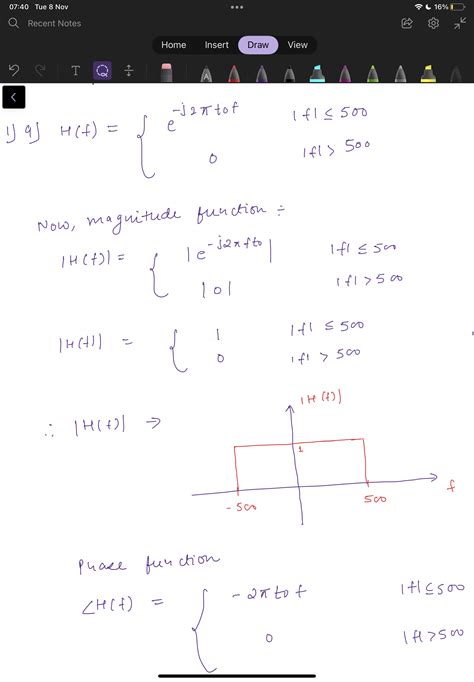 07:40 Tue 8 Nov 16%
Recent Notes
Home Insert Draw View
T
A
1) 9) H(f) = { e^-j2πtof |f| ≤ 500
0 |f| > 500
Now, magnitude function ÷
|H(f)| = { |e^-j2πfto| |f| ≤ 500
|0| |f| > 500
|H(f)| = { 1 |f| ≤ 500
0 |f| > 500
∴ |H(f)| →
|H(f)|
1
f
-500 500
Phase function
∠H(f) = { -2πtof |f| ≤ 500
0 |f| > 500